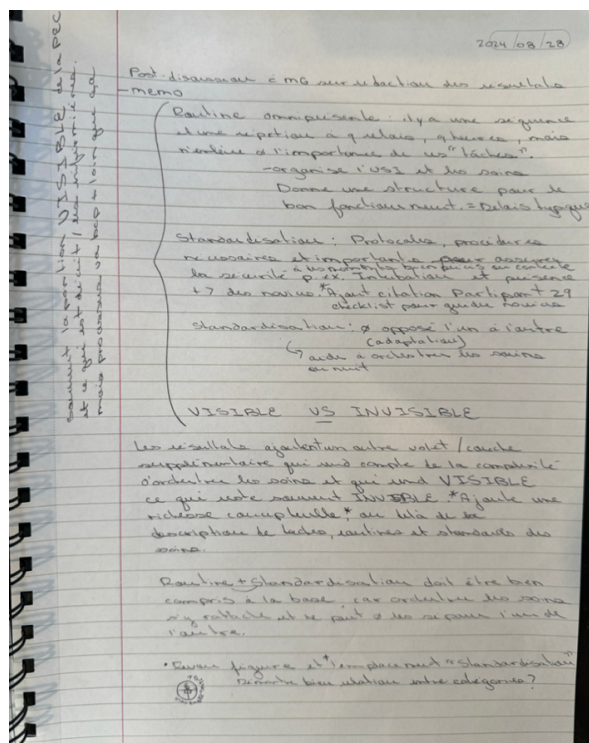 2024/08/28
Post-discussion c̄ MG sur rédaction des résultats
- memo
Routine omniprésente : il y a une séquence
et une répétion à q relais, q heures, mais
n'enlève à l'importance de ces "tâches".
- organise l'USI et les soins
Donne une structure pour le
bon fonctionnement. = Delais
Standardisation : Protocoles, procédures
nécessaires et importante pour assurer
la sécurité à des moments en contexte
p. ex. Intubation et présence
↳ des novices. *Ajout citation Participant 29
checklist pour guider novices
Standardisation : ø opposé l'un à l'autre
(adaptation)
↳ aide à orchestrer les soins
au nuit
VISIBLE VS INVISIBLE
Les résultats ajoutent un autre volet / couche
supplémentaire qui rend compte de la complexité
d'orchestrer les soins et qui rend VISIBLE
ce qui reste souvent INVISIBLE *Ajoute une
richesse conceptuelle* au delà de la
description de tâches, routines et standards des
soins.
Routine + Standardisation doit être bien
compris à la base, car orchestrer les soins
s'y rattache et ne peut ø les séparer l'un de
l'autre.
• figure et l'emplacement "Standardisation"
Démontre bien relation entre catégories?
Souvent, la portion VISIBLE de la PEC
et ce qui est décrit / les infirmières.
mais processus va bcp + loin que ça